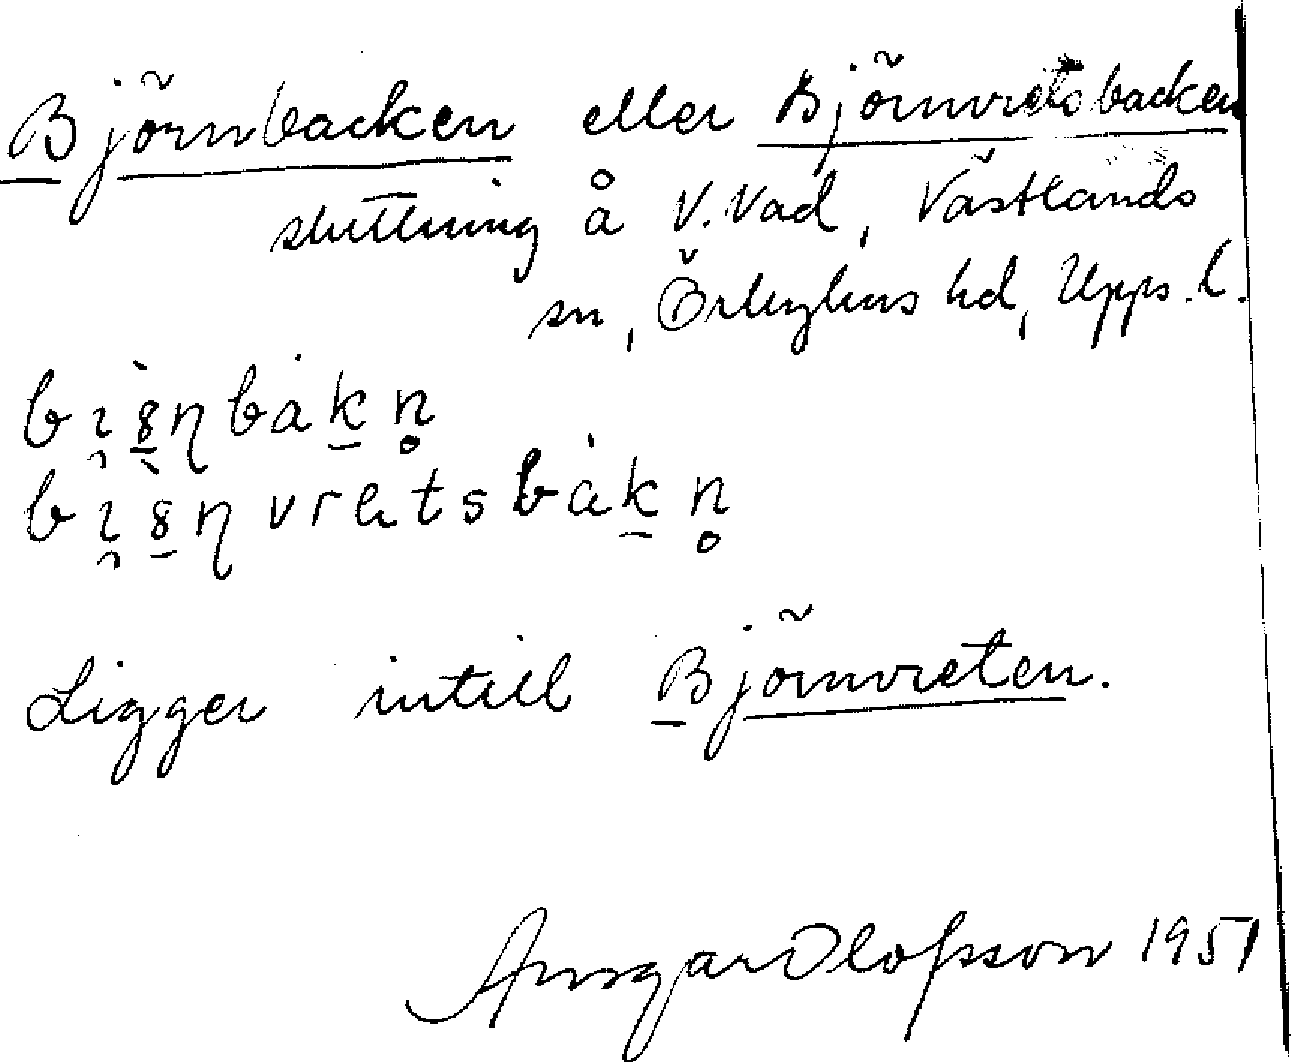 Björnbacken eller Björnvretsbacken
sluttning å V. Vad, Västlands
sn, Örbyhus hd, Upps. l.
Ligger intill Björnvreten.
Ansgar Olofsson 1951